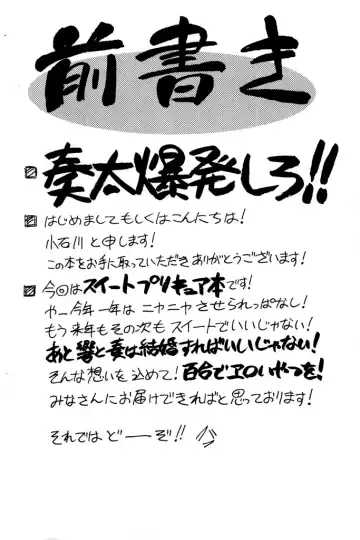 前書き
奏太爆発しろ!!
はじめましてもしくはこんにちは!
小石川と申します!
この本をお手に取っていただきありがとうございます!
今回はスイートプリキュア本です!
やー今年一年はニヤニヤさせられっぱなし!
もう来年もその次もスイートでいいじゃない!
あと響と奏は結婚すればいいじゃない!
そんな想いを込めて!百合でエロいやつを!
みなさんにお届けできればと思っております!
それではどーーぞ!!